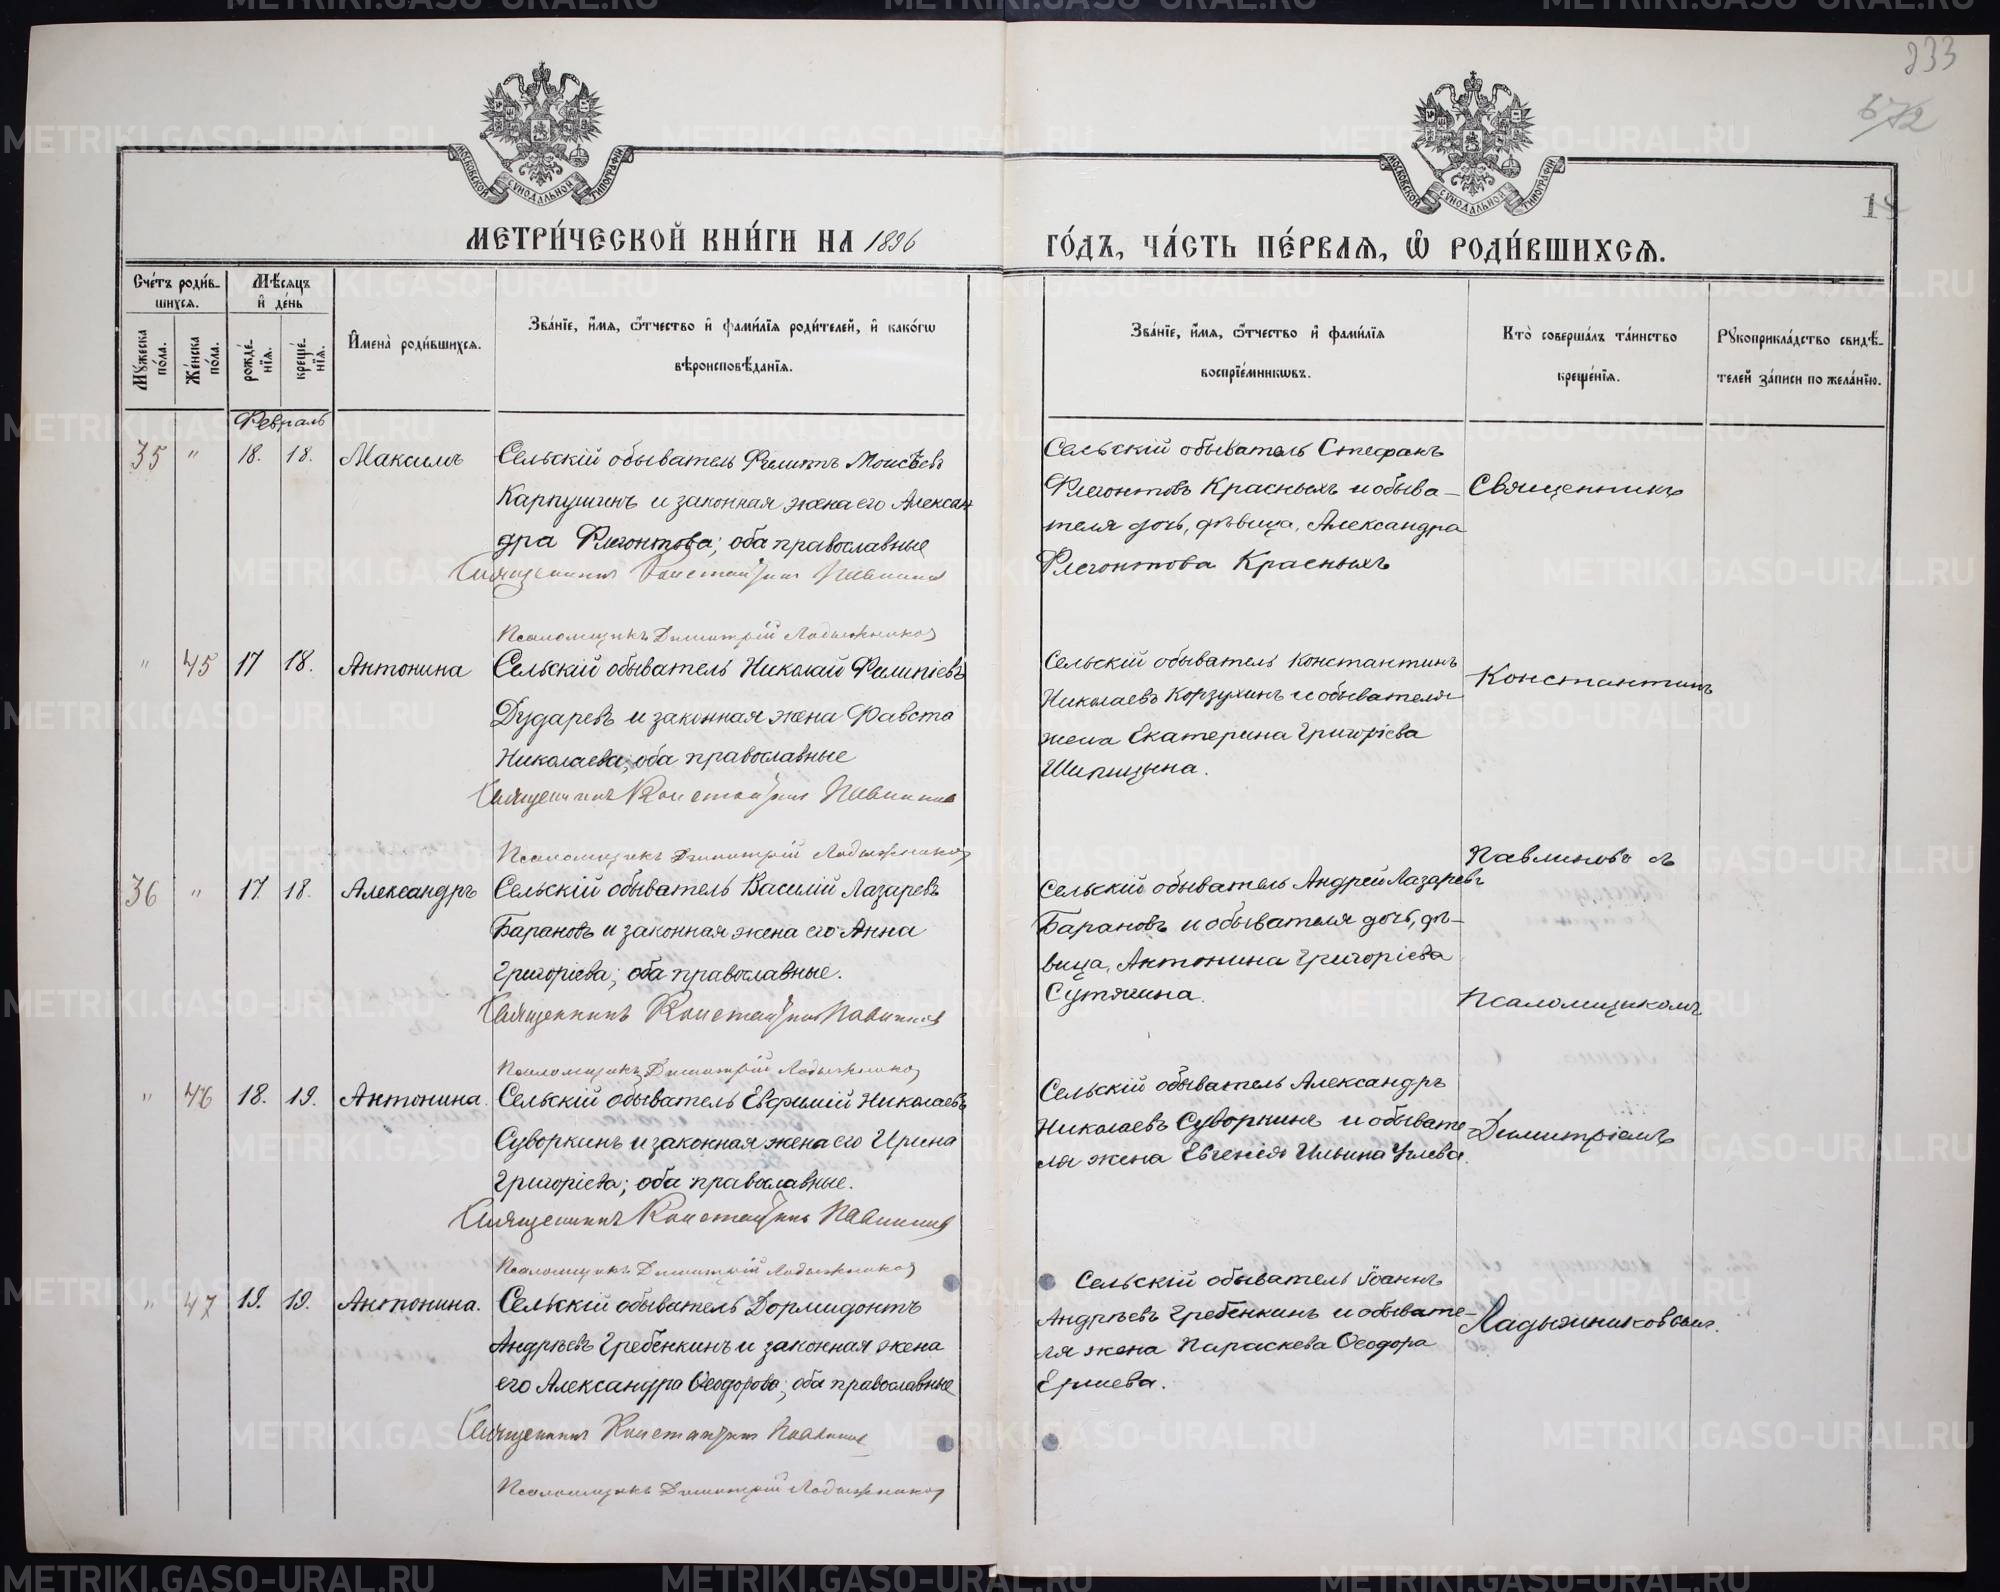 233
672
14
МОСКОВСКОЙ СѴНОДАЛЬНОЙ ТИПОГРАФІИ
МОСКОВСКОЙ СѴНОДАЛЬНОЙ ТИПОГРАФІИ
МЕТРИ́ЧЕСКОЙ КНИ́ГИ НА 1896
ГО́ДЪ, ЧА́СТЬ ПЕ́РВАЯ, Ѽ РОДИ́ВШИХСЯ.
Сче́тъ роди́в-
шихся.
Мѣ́сяцъ
и҆ де́нь
Мꙋжеска по́ла.
Же́нска по́ла.
рожде́-
нїя.
креще́-
нїя.
И҆мена̀ роди́вшихся.
Зва́нїе, и҆́мя, ѻ҆́тчество и҆ фами́лїя роди́телей, и҆ како́гѡ
вѣроисповѣ́данїя.
Зва́нїе, и҆́мя, ѻ҆́тчество и҆ фами́лїя
воспрїе́мникѡвъ.
Кто̀ соверша́лъ та́инство
креще́нїя.
Рꙋкоприкла́дство свидѣ́-
телей за́писи по жела́нїю.
Февраль
35 " 18. 18. Максимъ
Сельскій обыватель Филиппъ Моисѣевъ
Карпушинъ и законная жена его Алексан
дра Флегонтова; оба православные
Священникъ Константинъ Павлиновъ
Псаломщикъ Димитрій Ладыжниковъ
Сельскій обыватель Стефанъ
Флегонтовъ Красныхъ и обыва-
теля дочь, дѣвица, Александра
Флегонтова Красныхъ
Священникъ
" 45 17 18. Антонина
Сельскій обыватель Николай Филипіевъ
Дударевъ и законная жена Фавста
Николаева; оба православные
Священникъ Константинъ Павлиновъ
Псаломщикъ Димитрій Ладыжниковъ
Сельскій обыватель Константинъ
Николаевъ Корзухинъ и обывателя
жена Екатерина Григоріева
Шипицына.
Константинъ
36 " 17. 18. Александръ
Сельскій обыватель Василій Лазаревъ
Барановъ и законная жена его Анна
Григоріева; оба православные.
Священникъ Константинъ Павлиновъ
Псаломщикъ Димитрій Ладыжниковъ
Павлиновъ съ
Сельскій обыватель Андрей Лазаревъ
Барановъ и обывателя дочь, дѣ-
вица, Антонина Григоріева
Сутягина.
Псаломщикомъ
" 46 18. 19. Антонина.
Сельскій обыватель Евфимій Николаевъ
Суворкинъ и законная жена его Ирина
Григоріева; оба православные.
Священникъ Константинъ Павлиновъ
Псаломщикъ Димитрій Ладыжниковъ
Сельскій обыватель Александръ
Николаевъ Суворкинъ и обывате-
ля жена Евгенія Ильина Углева.
Димитріемъ
" 47 19. 19. Антонина.
Сельскій обыватель Дормидонтъ
Андрѣевъ Гребенкинъ и законная жена
его Александра Ѳеодорова; оба православные
Священникъ Константинъ Павлиновъ
Псаломщикъ Димитрій Ладыжниковъ
Сельскій обыватель Іоаннъ
Андрѣевъ Гребенкинъ и обывате-
ля жена Параскева Ѳеодора
Ершева.
Ладыжниковымъ.